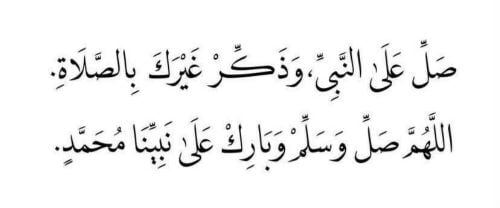 صَلِّ عَلَىٰ النَّبِيِّ، وَذَكِّرْ غَيْرَكَ بِالصَّلَاةِ.
اللَّهُمَّ صَلِّ وَسَلِّمْ وَبَارِكْ عَلَىٰ نَبِيِّنَا مُحَمَّدٍ.